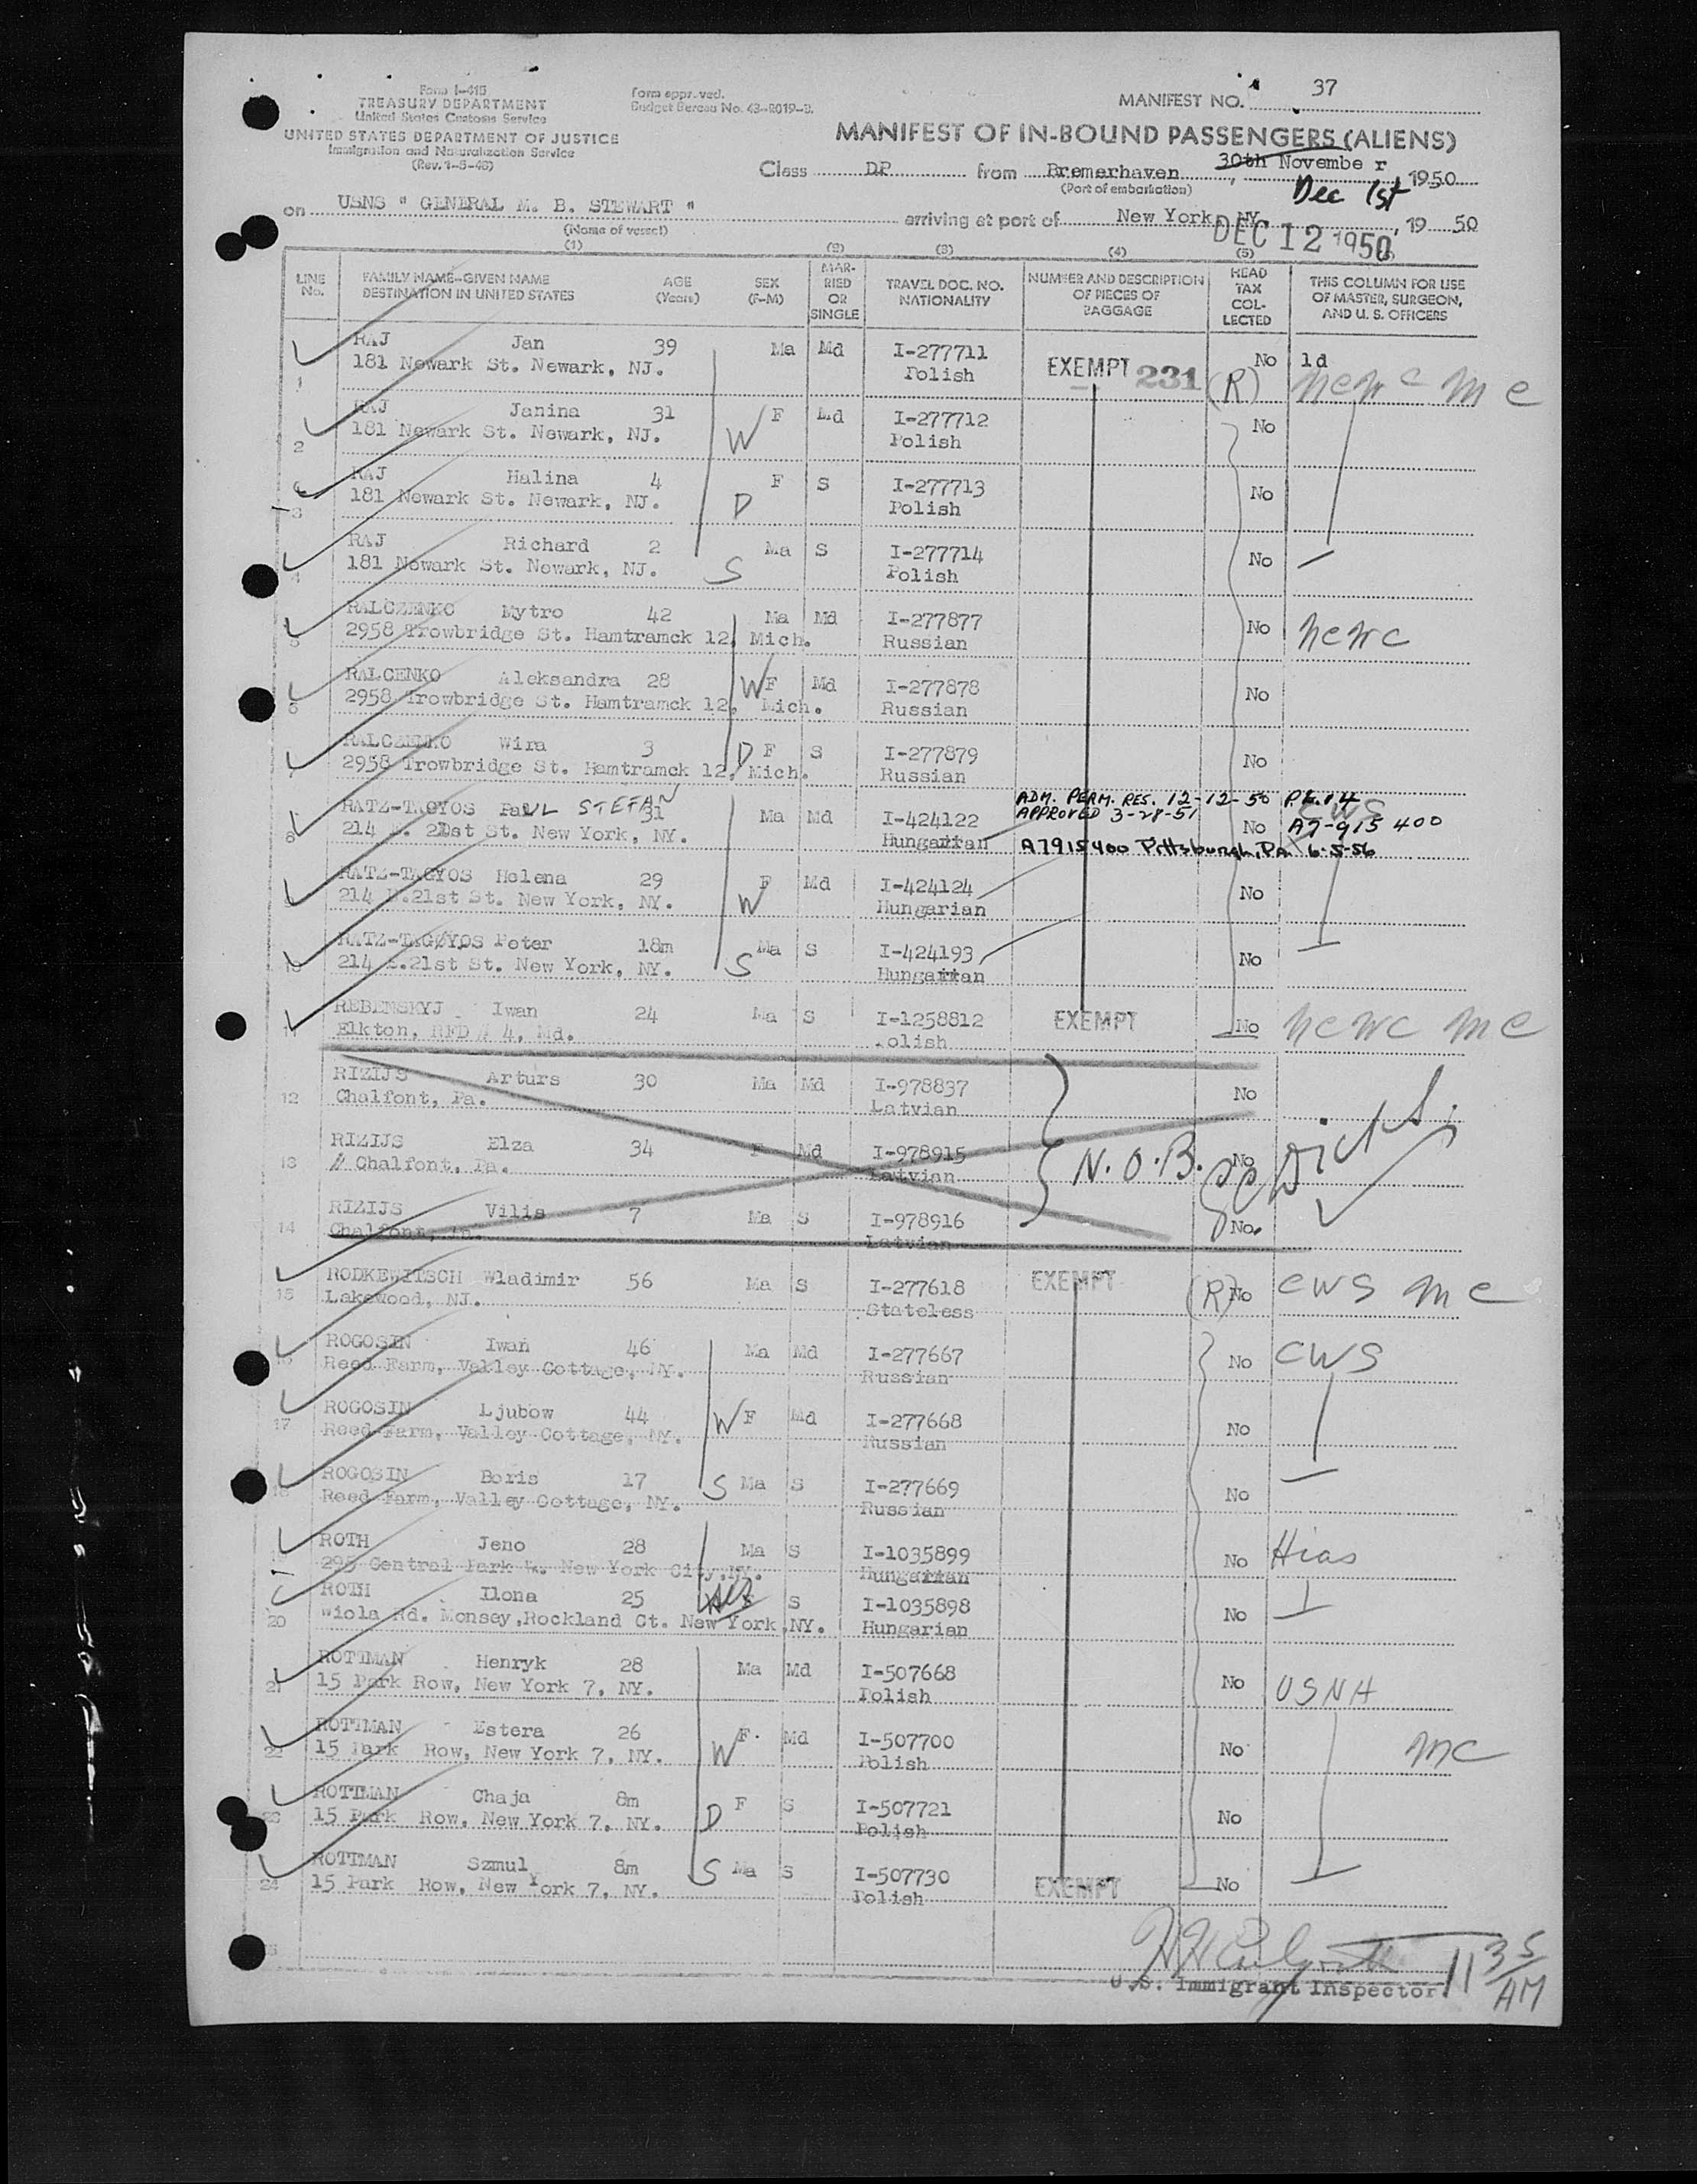 Form I-415
TREASURY DEPARTMENT
United States Customs Service
UNITED STATES DEPARTMENT OF JUSTICE
Immigration and Naturalization Service
(Rev. 1-5-48)
Form approved.
Budget Bureau No. 43-R019-2.
MANIFEST NO. 37
MANIFEST OF IN-BOUND PASSENGERS (ALIENS)
Class DP from Bremerhaven, 30th November 1950
(Port of embarkation) Dec 1st
on USNS " GENERAL M. B. STEWART " arriving at port of New York, NY, 1950
(Name of vessel) DEC 12 1950
(1) (2) (3) (4) (5)
LINE No. FAMILY NAME-GIVEN NAME DESTINATION IN UNITED STATES AGE (Years) SEX (F-M) MAR-RIED OR SINGLE TRAVEL DOC. NO. NATIONALITY NUMBER AND DESCRIPTION OF PIECES OF BAGGAGE HEAD TAX COL-LECTED THIS COLUMN FOR USE OF MASTER, SURGEON, AND U. S. OFFICERS
RAJ Jan 39 Ma Md I-277711 EXEMPT 231 No 1d
1 181 Newark St. Newark, NJ. Polish (R) ncwc mc
RAJ Janina 31 W F Md I-277712 No
2 181 Newark St. Newark, NJ. Polish
RAJ Halina 4 D F S I-277713 No
3 181 Newark St. Newark, NJ. Polish
RAJ Richard 2 S Ma S I-277714 No
4 181 Newark St. Newark, NJ. Polish
RALCZENKO Mytro 42 Ma Md I-277877 No ncwc
5 2958 Trowbridge St. Hamtramck 12, Mich. Russian
RALCENKO Aleksandra 28 W F Md I-277878 No
6 2958 Trowbridge St. Hamtramck 12, Mich. Russian
RALCZENKO Wira 3 D F S I-277879 No
7 2958 Trowbridge St. Hamtramck 12, Mich. Russian
RATZ-TAGYOS PaUL STEFAN 31 Ma Md I-424122 ADM. PERM. RES. 12-12-50 P.L. 14
APPROVED 3-28-51 No CWS A7-915 400
8 214 E. 21st St. New York, NY. Hungarian A7915400 Pittsburgh, Pa. 6-5-56
RATZ-TAGYOS Helena 29 W F Md I-424124 No
9 214 E.21st St. New York, NY. Hungarian
RATZ-TAGYOS Peter 18m S Ma S I-424193 No
10 214 E.21st St. New York, NY. Hungarian
REBENSKYJ Iwan 24 Ma S I-1258812 EXEMPT No ncwc mc
11 Elkton, RFD # 4, Md. Polish
RIZIJS Arturs 30 Ma Md I-978837 No
12 Chalfont, Pa. Latvian
RIZIJS Elza 34 F Md I-978915 N.O.B. No
13 Chalfont, Pa. Latvian
RIZIJS Vilis 7 Ma S I-978916 No.
14 Chalfont, Pa. Latvian
RODKEWITSCH Wladimir 56 Ma S I-277618 EXEMPT (R) No CWS mc
15 Lakewood, NJ. Stateless
ROGOSIN Iwan 46 Ma Md I-277667 No CWS
16 Reed Farm, Valley Cottage, NY. Russian
ROGOSIN Ljubow 44 W F Md I-277668 No
17 Reed Farm, Valley Cottage, NY. Russian
ROGOSIN Boris 17 S Ma S I-277669 No
18 Reed Farm, Valley Cottage, NY. Russian
ROTH Jeno 28 Ma S I-1035899 No Hias
295 Central Park W. New York City,NY. Hungarian
ROTH Ilona 25 S I-1035898 No
20 Wiola Rd. Monsey,Rockland Ct. New York,NY. Hungarian
ROTTMAN Henryk 28 Ma Md I-507668 No USNA
21 15 Park Row, New York 7, NY. Polish
ROTTMAN Estera 26 W F. Md I-507700 No mc
22 15 Park Row, New York 7, NY. Polish
ROTTMAN Chaja 8m D F S I-507721 No
23 15 Park Row, New York 7, NY. Polish
ROTTMAN Szmul 8m S Ma S I-507730 EXEMPT No
24 15 Park Row, New York 7, NY. Polish
U.S. Immigrant Inspector. 11 35 AM